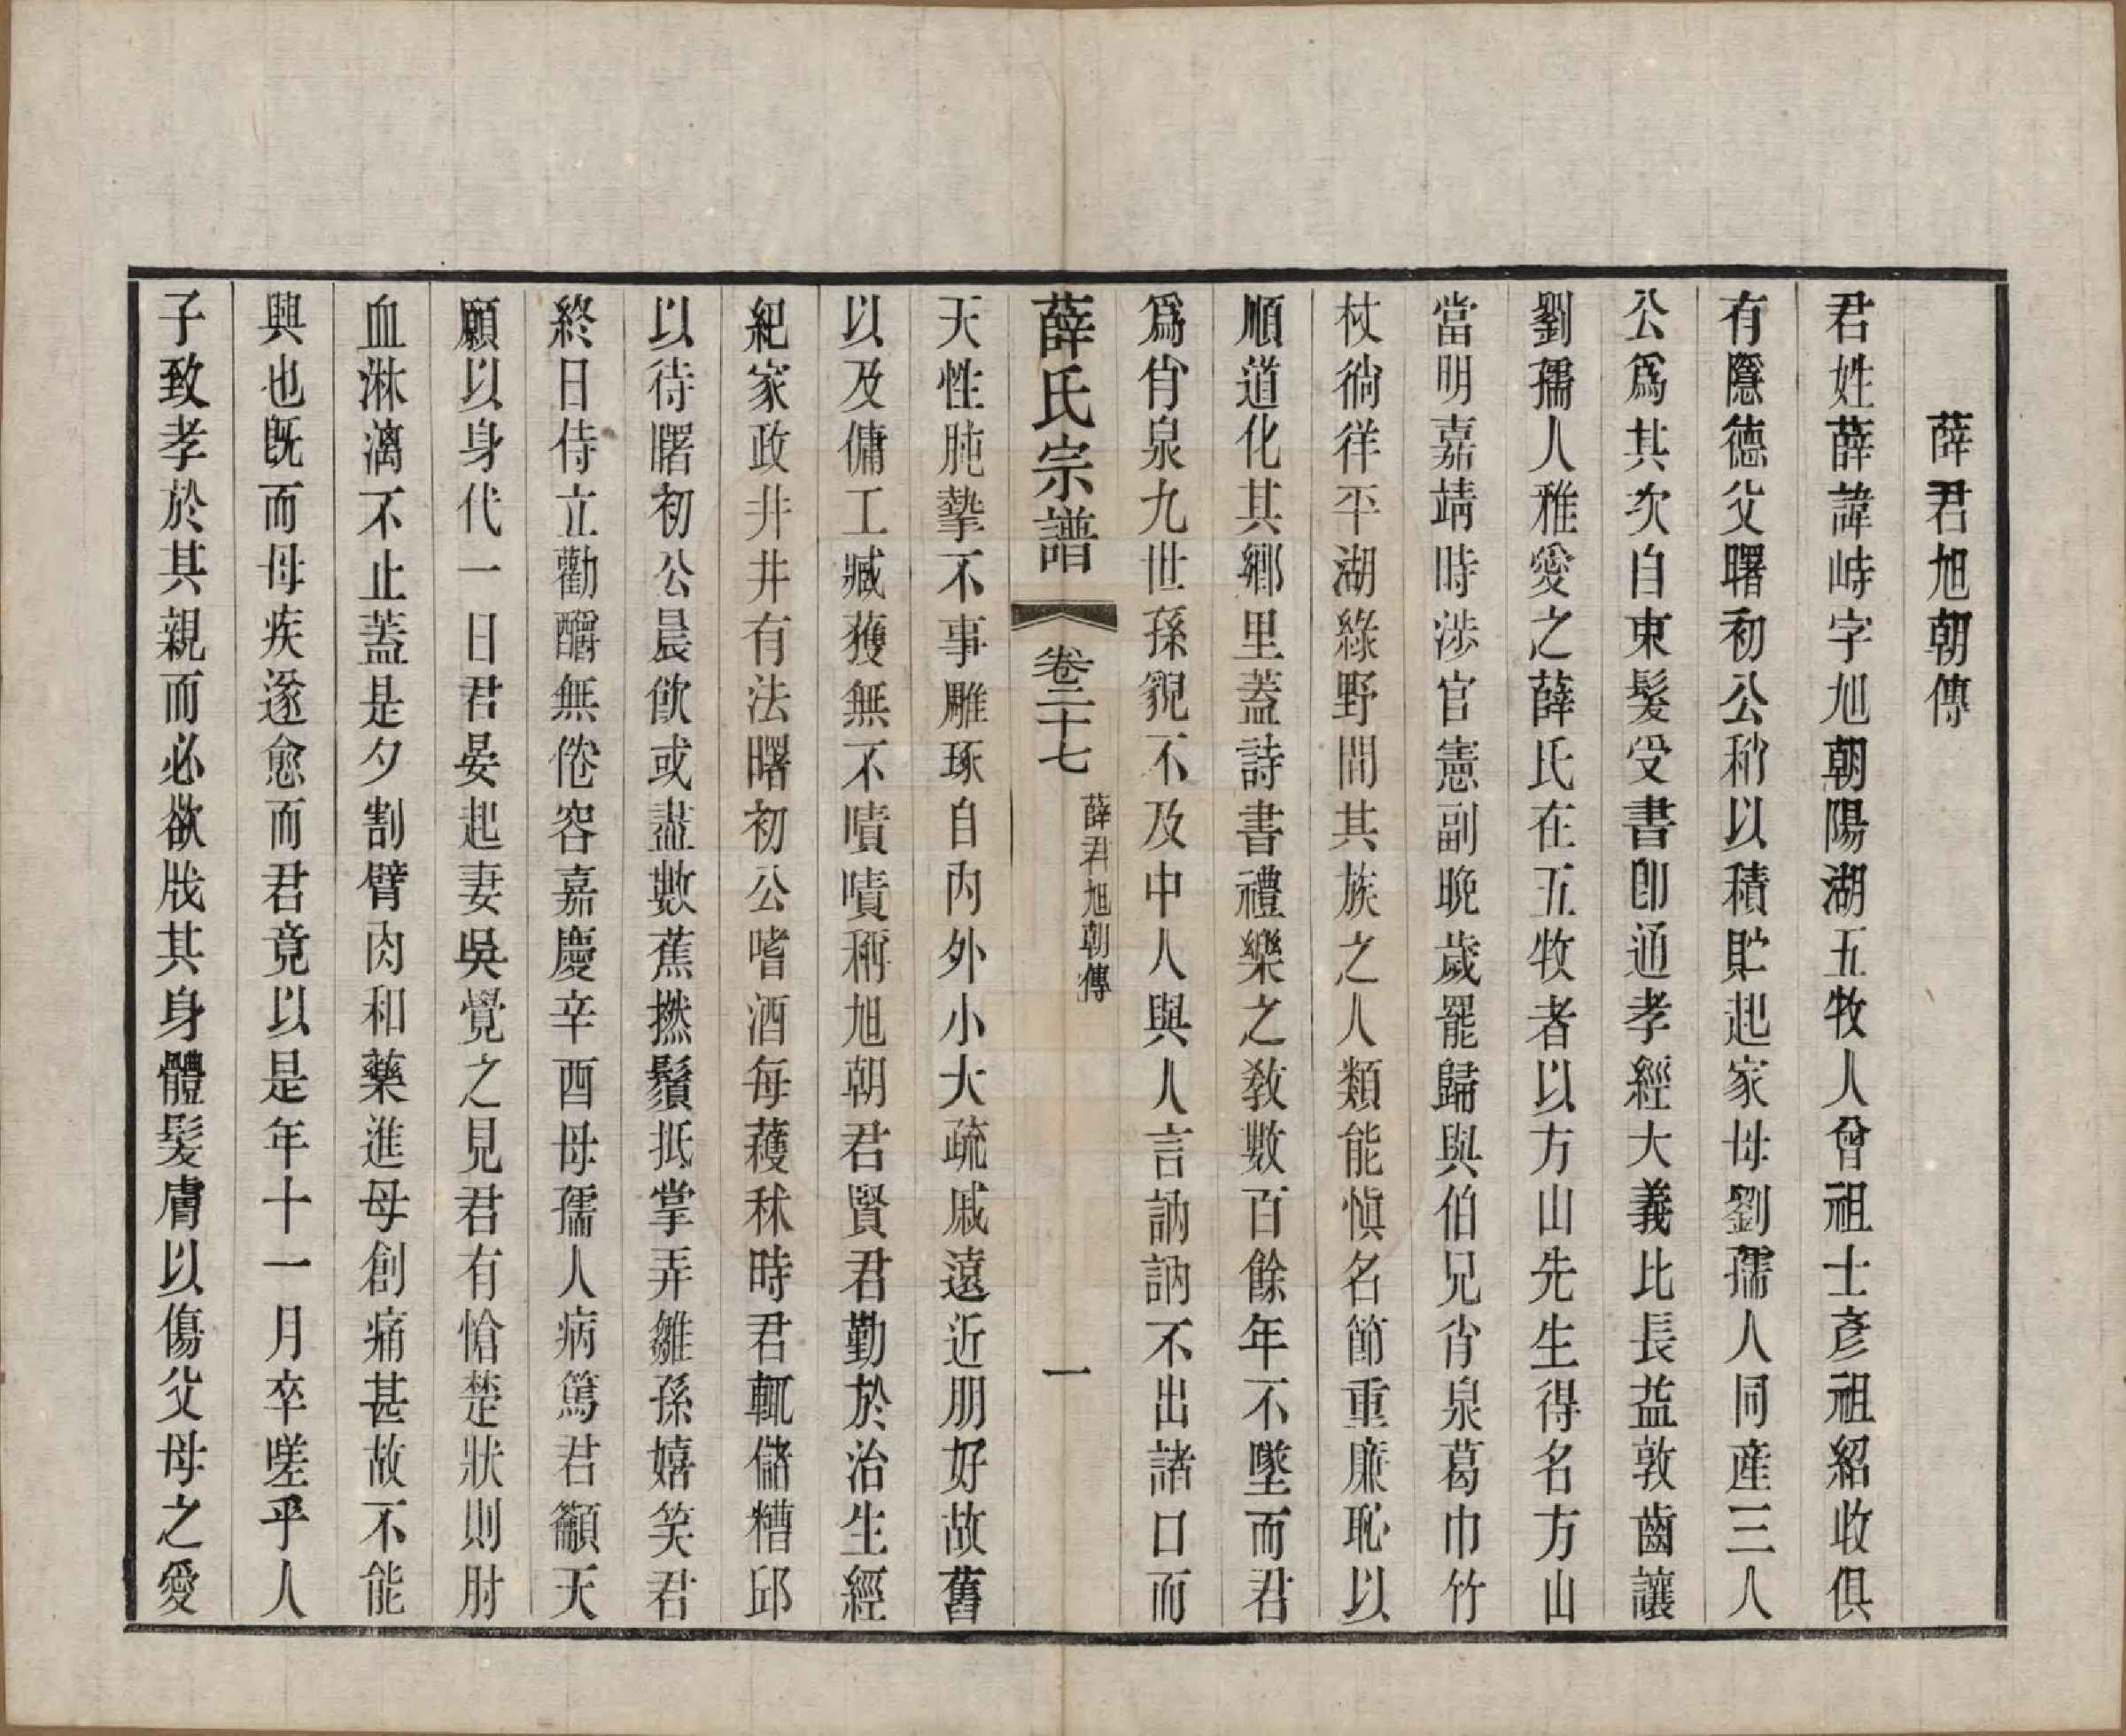 薛君旭朝傳
君姓薛諱峙字旭朝陽湖五牧人曾祖士彥祖紹收俱
有隱德父曙初公稍以積貯起家母劉孺人同産三人
公爲其次自束髮受書卽通孝經大義比長益敦齒讓
劉孺人雅愛之薛氏在五牧者以方山先生得名方山
當明嘉靖時涉官憲副晚歲罷歸與伯兄肖泉葛巾竹
杖徜徉平湖綠野間其族之人類能愼名節重廉恥以
順道化其鄉里蓋詩書禮樂之敎數百餘年不墜而君
爲肖泉九世孫貎不及中人與人言訥訥不出諸口而
薛氏宗譜 卷二十七 薛君旭朝傳 一
天性肫摯不事雕琢自內外小大疏戚遠近朋好故舊
以及傭工臧獲無不嘖嘖稱旭朝君賢君勤於治生經
紀家政井井有法曙初公嗜酒每穫秫時君輒儲糟邱
以待曙初公晨飮或盡數蕉撚鬚抵掌弄雛孫嬉笑君
終日侍立勸酹無倦容嘉慶辛酉母孺人病篤君籲天
願以身代一日君晏起妻吳覺之見君有愴楚狀則肘
血淋漓不止蓋是夕割臂肉和藥進母創痛甚故不能
興也旣而母疾遂愈而君竟以是年十一月卒嗟乎人
子致孝於其親而必欲戕其身體髮膚以傷父母之愛